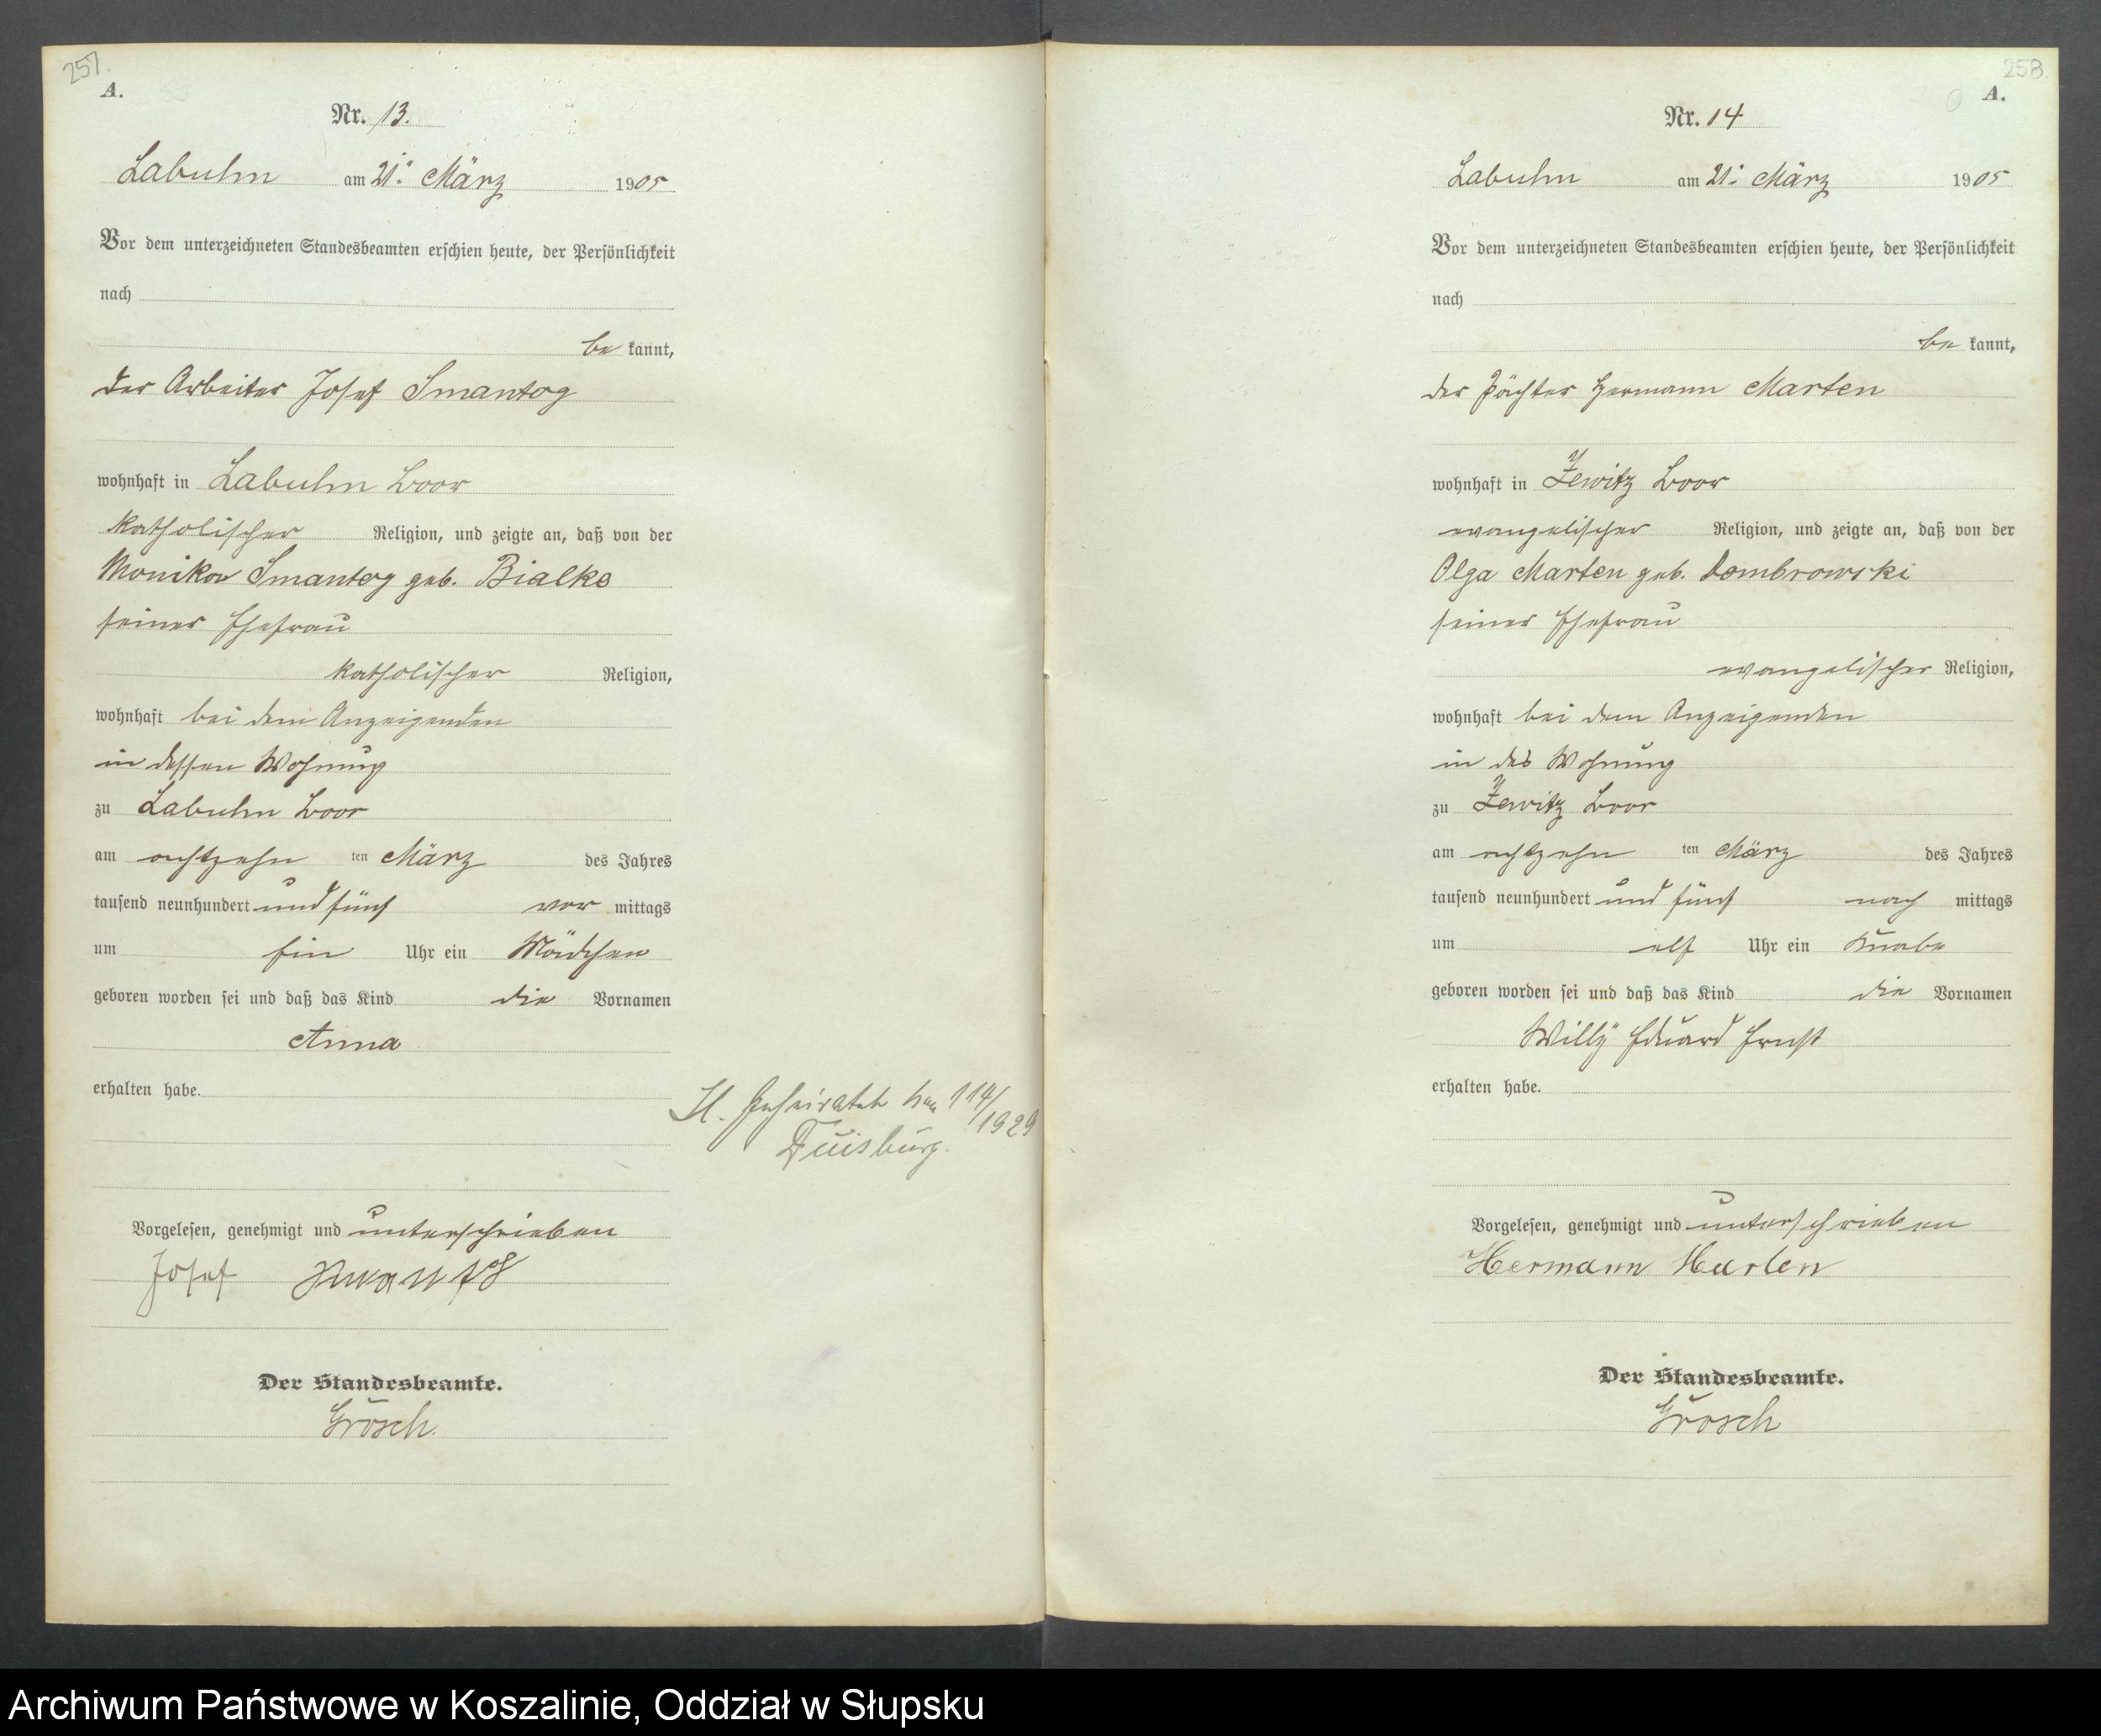 257.
A.
Nr. 13.
Labuhn am 21. März 1905
Vor dem unterzeichneten Standesbeamten erschien heute, der Persönlichkeit
nach
be kannt,
der Arbeiter Josef Smantog
wohnhaft in Labuhn
katholischer Religion, und zeigte an, daß von der
Monika Smantog geb. Bialke
seiner Ehefrau
katholischer Religion,
wohnhaft bei dem Anzeigenden
in dessen Wohnung
zu Labuhn
am achtzehn ten März des Jahres
tausend neunhundert und fünf vor mittags
um Ein Uhr ein Mädchen
geboren worden sei und daß das Kind die Vornamen
Anna
erhalten habe.
Vorgelesen, genehmigt und unterschrieben
Josef
Der Standesbeamte.
Grosch.
H. Geheiratet 114/
1929
Duisburg.
258.
A.
Nr. 14
Labuhn am 21. März 1905
Vor dem unterzeichneten Standesbeamten erschien heute, der Persönlichkeit
nach
be kannt,
der Pächter Hermann Marten
wohnhaft in Zewitz
evangelischer Religion, und zeigte an, daß von der
Olga Marten geb. Dombrowski
seiner Ehefrau
evangelischer Religion,
wohnhaft bei dem Anzeigenden
in des Wohnung
zu Zewitz
am achtzehn ten März des Jahres
tausend neunhundert und fünf nach mittags
um elf Uhr ein Knabe
geboren worden sei und daß das Kind die Vornamen
Willÿ Eduard Ernst
erhalten habe.
Vorgelesen, genehmigt und unterschrieben
Hermann Marten
Der Standesbeamte.
Grosch
Archiwum Państwowe w Koszalinie, Oddział w Słupsku